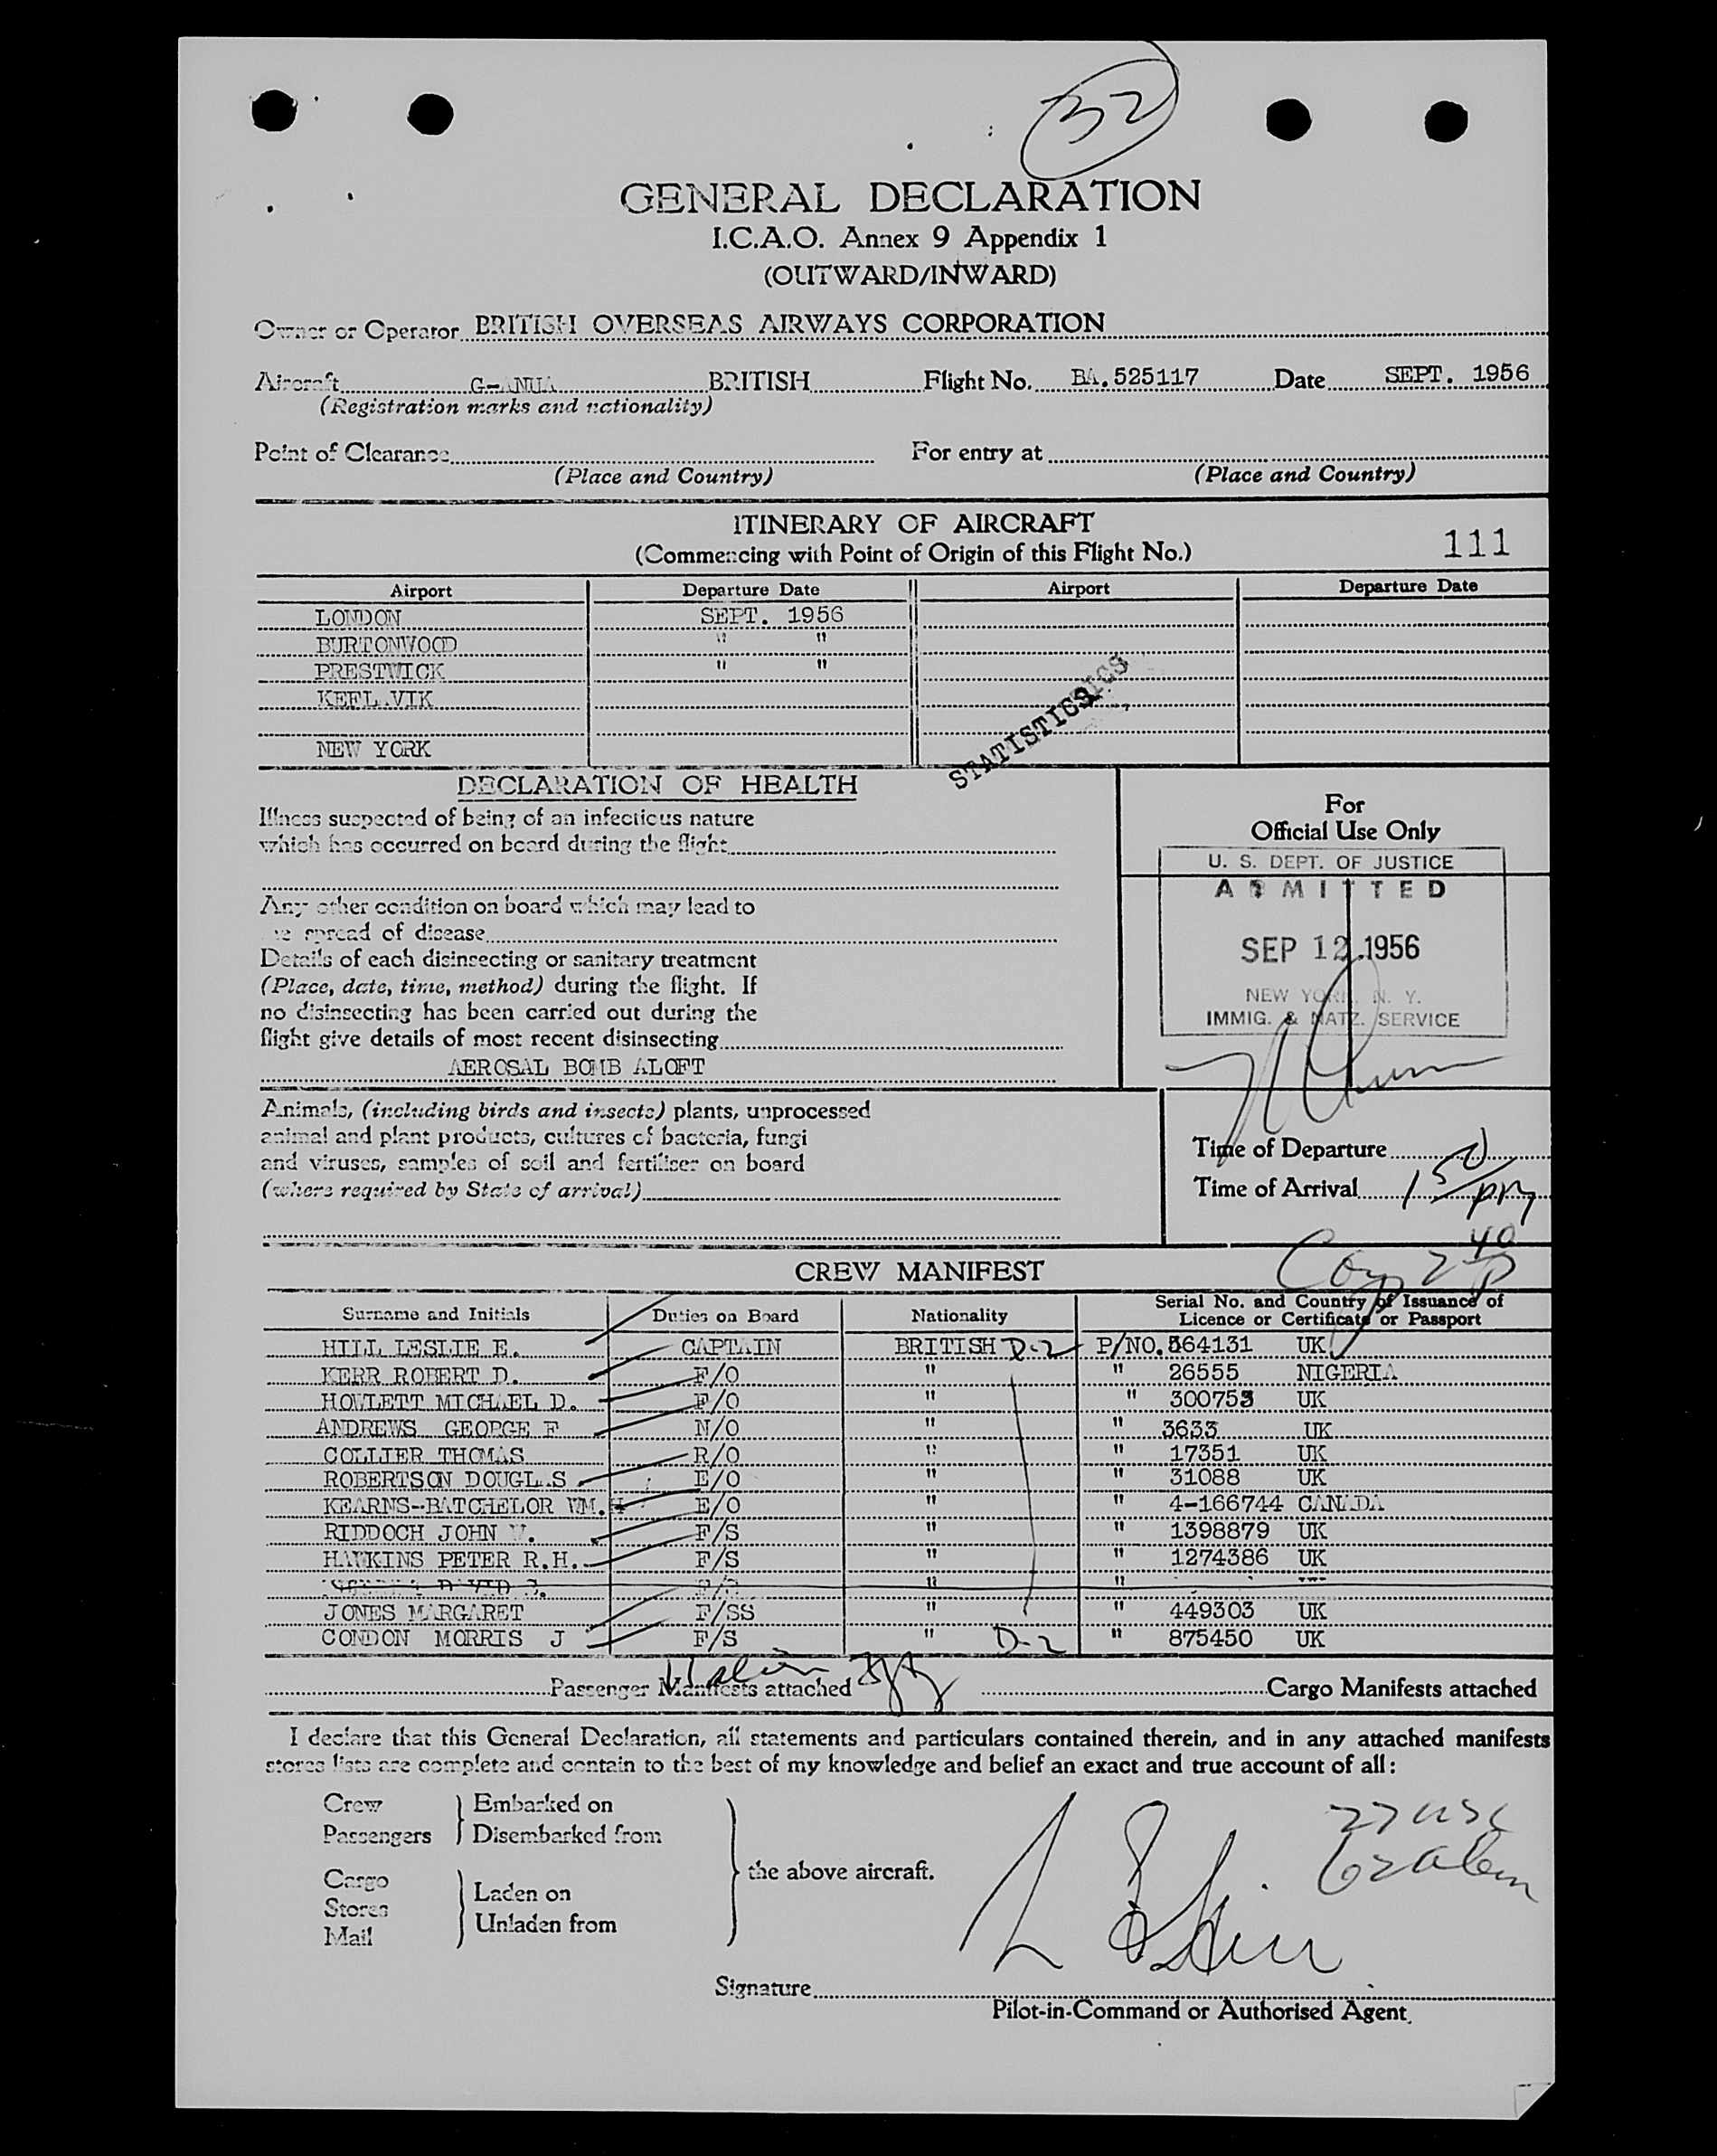 32
GENERAL DECLARATION
I.C.A.O. Annex 9 Appendix 1
(OUTWARD/INWARD)
Owner or Operator BRITISH OVERSEAS AIRWAYS CORPORATION
Aircraft G-ANUA BRITISH Flight No. BA.525117 Date SEPT. 1956
(Registration marks and nationality)
Point of Clearance For entry at
(Place and Country) (Place and Country)
ITINERARY OF AIRCRAFT
(Commencing with Point of Origin of this Flight No.) 111
Airport Departure Date Airport Departure Date
LONDON SEPT. 1956
BURTONWOOD " "
PRESTWICK " "
KEFLAVIK
NEW YORK
STATISTICS
DECLARATION OF HEALTH
Illness suspected of being of an infectious nature
which has occurred on board during the flight
Any other condition on board which may lead to
spread of disease
Details of each disinsecting or sanitary treatment
(Place, date, time, method) during the flight. If
no disinsecting has been carried out during the
flight give details of most recent disinsecting
AEROSAL BOMB ALOFT
For
Official Use Only
U. S. DEPT. OF JUSTICE
ADMITTED
SEP 12 1956
NEW YORK, N. Y.
IMMIG. & NATZ. SERVICE
Animals, (including birds and insects) plants, unprocessed
animal and plant products, cultures of bacteria, fungi
and viruses, samples of soil and fertiliser on board
(where required by State of arrival)
Time of Departure
Time of Arrival 1 50 pm
240 P
CREW MANIFEST
Surname and Initials Duties on Board Nationality Serial No. and Country of Issuance of
Licence or Certificate or Passport
HILL LESLIE E. CAPTAIN BRITISH D-2 P/NO. 564131 UK
KERR ROBERT D. F/O " " 26555 NIGERIA
HOWLETT MICHAEL D. F/O " " 300753 UK
ANDREWS GEORGE F N/O " " 3633 UK
COLLIER THOMAS R/O " " 17351 UK
ROBERTSON DOUGLAS E/O " " 31088 UK
KEARNS-BATCHELOR WM.H E/O " " 4-166744 CANADA
RIDDOCH JOHN W. F/S " " 1398879 UK
HAWKINS PETER R.H. F/S " " 1274386 UK
DAVID " "
JONES MARGARET F/SS " " 449303 UK
CONDON MORRIS J F/S " D-2 " 875450 UK
Passenger Manifests attached Cargo Manifests attached
I declare that this General Declaration, all statements and particulars contained therein, and in any attached manifests
stores lists are complete and contain to the best of my knowledge and belief an exact and true account of all:
Crew Embarked on
Passengers Disembarked from
Cargo
Stores Laden on
Mail Unladen from
the above aircraft.
27 usc
62 alien
Signature
Pilot-in-Command or Authorised Agent.